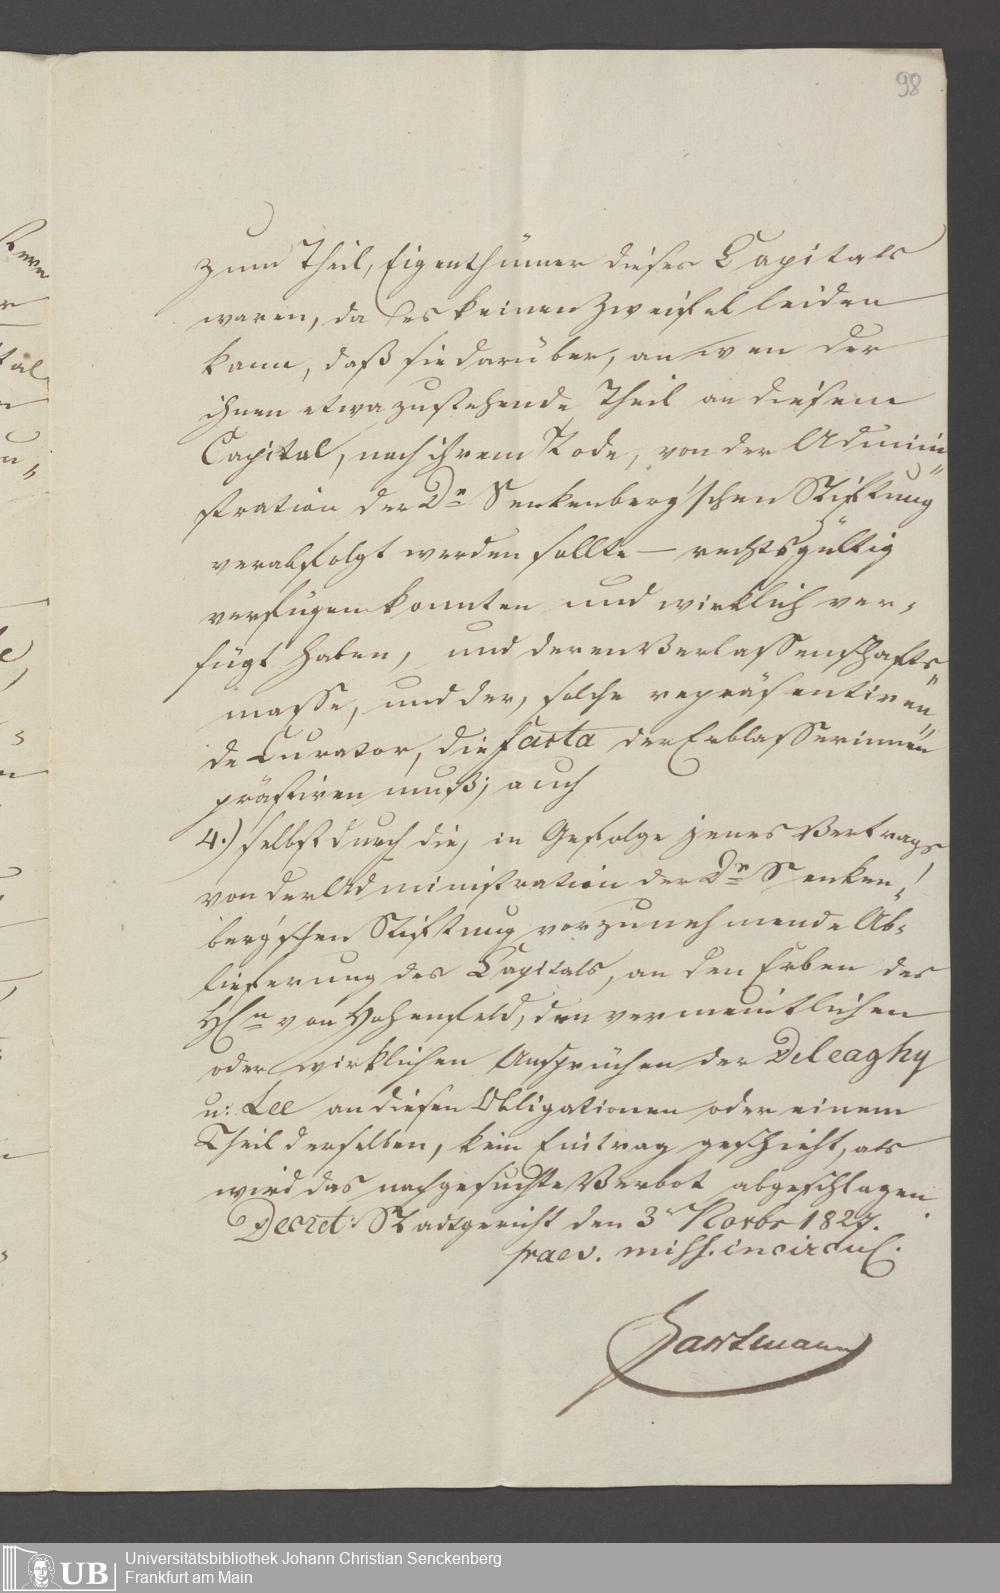 98
zum Theil, Eigenthümer dieses Capitals
waren, da es keinen Zweifel leiden
kann, daß sie darüber, an wen der
ihnen etwa zustehende Theil an diesem
Capital, nach ihrem Tode, von der Admini„
stration der Dr Senkenberg'schen Stiftung
verabfolgt werden sollte — rechtsgültig
verfügen konnten und wirklich ver„
fügt haben, und deren Verlassenschafts„
masse, und der, solche repräsentiren„
de Curator, die facta der Erblasserinnen
prästiren muß; auch
4.) selbst durch die, in Gefolge jenes Vertrags
von der Administration der Dr Senken„
berg'schen Stiftung vorzunehmende Ab„
lieferung des Capitals, an den Erben des
Hn von Hohenfeld, den vermeintlichen
oder wirklichen Ansprüchen der Deleaghy
u: Lee an diesen Obligationen oder einem
Theil derselben, kein Eintrag geschieht, als
wird das nachgesuchte Verbot abgeschlagen.
Decret: Stadtgericht den 3r Novbr 1827.
praev. miss. in circul.
Hartmann
UB
Universitätsbibliothek Johann Christian Senckenberg
Frankfurt am Main